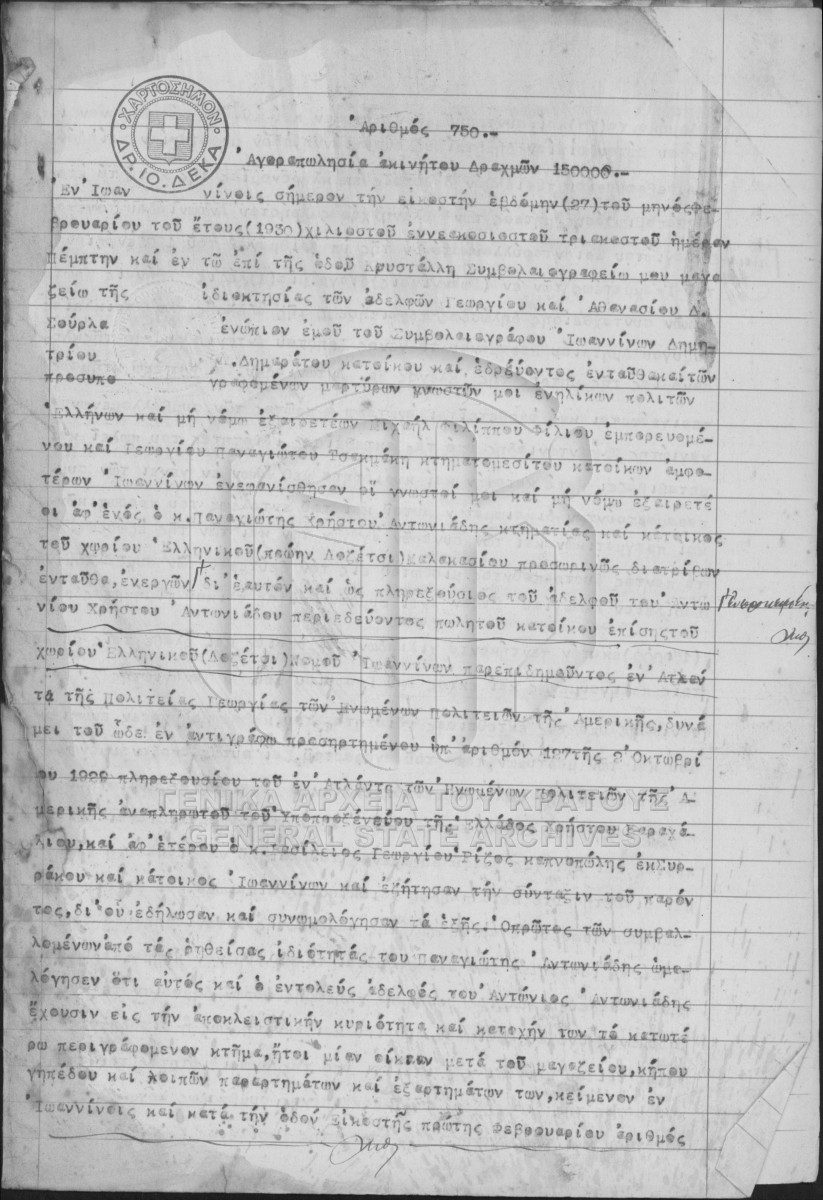 ΧΑΡΤΟΣΗΜΟΝ
ΔΡ. 10. ΔΕΚΑ
Ἀριθμός 750.-
Ἀγοραπωλησία ἀκινήτου Δραχμῶν 150000.-
Ἐν Ἰωαν νίνοις σήμερον τήν εἰκοστήν ἑβδόμην(27)τοῦ μηνόςΦε-
βρουαρίου τοῦ ἔτους(1930)χιλιοστοῦ ἐννεακοσιοστοῦ τριακοστοῦ ἡμέραν
Πέμπτην καί ἐν τῶ ἐπί τῆς ὁδοῦ Κρυστάλλη Συμβολαιογραφείω μου μαγα
ζείω τῆς ἰδιοκτησίας τῶν ἀδελφῶν Γεωργίου καί Ἀθανασίου Δ.
Σούρλα ἐνώπιον ἐμοῦ τοῦ Συμβολαιογράφου Ἰωαννίνων Δημη-
τρίου .Δημαράτου κατοίκου καί ἑδρεύοντος ἐνταῦθακαίτῶν
προσυπο γραφομένων μαρτύρων γνωστῶν μοι ἐνηλίκων πολιτῶν
Ἑλλήνων καί μή νόμω ἐξαιρετέων Μιχαήλ Φιλίππου Φίλιου ἐμπορευομέ-
νου καί Γεωργίου Παναγιώτου Τσακμάκη κτηματομεσίτου κατοίκων ἀμφο-
τέρων Ἰωαννίνων ἐνεφανίσθησαν οἵ γνωστοί μοι καί μή νόμω ἐξαιρετέ
οι ἀφ' ἑνός ὁ κ.Παναγιώτης Χρήστου Ἀντωνιάδης κτηματίας καί κάτοικος
τοῦ χωρίου Ἑλληνικοῦ(πρώην Λοζέτσι)Μαλακασίου προσωρινῶς διατρίβων
ἐνταῦθα,ἐνεργῶν δι' ἑαυτόν καί ὡς πληρεξούσιος τοῦ ἀδελφοῦ του Ἀντω
νίου Χρήστου Ἀντωνιάδου περιεδεύοντος πωλητοῦ κατοίκου ἐπίσηςτοῦ
χωρίου Ἑλληνικοῦ(Λοζέτσι)Νομοῦ Ἰωαννίνων παρεπιδημοῦντος ἐν Ἀτλαν
τα τῆς Πολιτείας Γεωργίας τῶν Ἡνωμένων Πολιτειῶν τῆς Ἀμερικῆς,δυνά
μει τοῦ ὧδε ἐν ἀντιγράφω προσηρτημένου ὑπ' ἀριθμόν 127τῆς 2 Ὀκτωβρί
ου 1929 πληρεξουσίου τοῦ ἐν Ἀτλάντα τῶν Ἡνωμένων Πολιτειῶν τῆς Ἀ-
μερικῆς ἀναπληρωτοῦ τοῦ Ὑποπροξενείου τῆς Ἑλλάδος Χρήστου Καραχά-
λιου,καί ἀφ' ἑτέρου ὁ κ.Βασίλειος Γεωργίου Ρίζος καπνοπώλης ἐκΣυρ-
ράκου καί κάτοικος Ἰωαννίνων καί ἐζήτησαν τήν σύνταξιν τοῦ παρόν
τος,δι' οὗ ἐδήλωσαν καί συνωμολόγησαν τά ἑξῆς.Ὁπρῶτος τῶν συμβαλ-
λομένωνὑπό τάς ρηθείσας ἰδιότητάς του Παναγιώτης Ἀντωνιάδης ὡμο-
λόγησεν ὅτι αὐτός καί ὁ ἐντολεύς ἀδελφός του Ἀντώνιος Ἀντωνιάδης
ἔχουσιν εἰς τήν ἀποκλειστικήν κυριότητα καί κατοχήν των τό κατωτέ
ρω περιγραφόμενον κτῆμα,ἤτοι μίαν οἰκίαν μετά τοῦ μαγαζείου,κήπου
γηπέδου καί λοιπῶν παραρτημάτων καί ἐξαρτημάτων των,κείμενον ἐν
Ἰωαννίνοις καί κατά τήν ὁδόν Εἰκοστῆς πρώτης Φεβρουαρίου ἀριθμός
ΓΕΝΙΚΑ ΑΡΧΕΙΑ ΤΟΥ ΚΡΑΤΟΥΣ
GENERAL STATE ARCHIVES